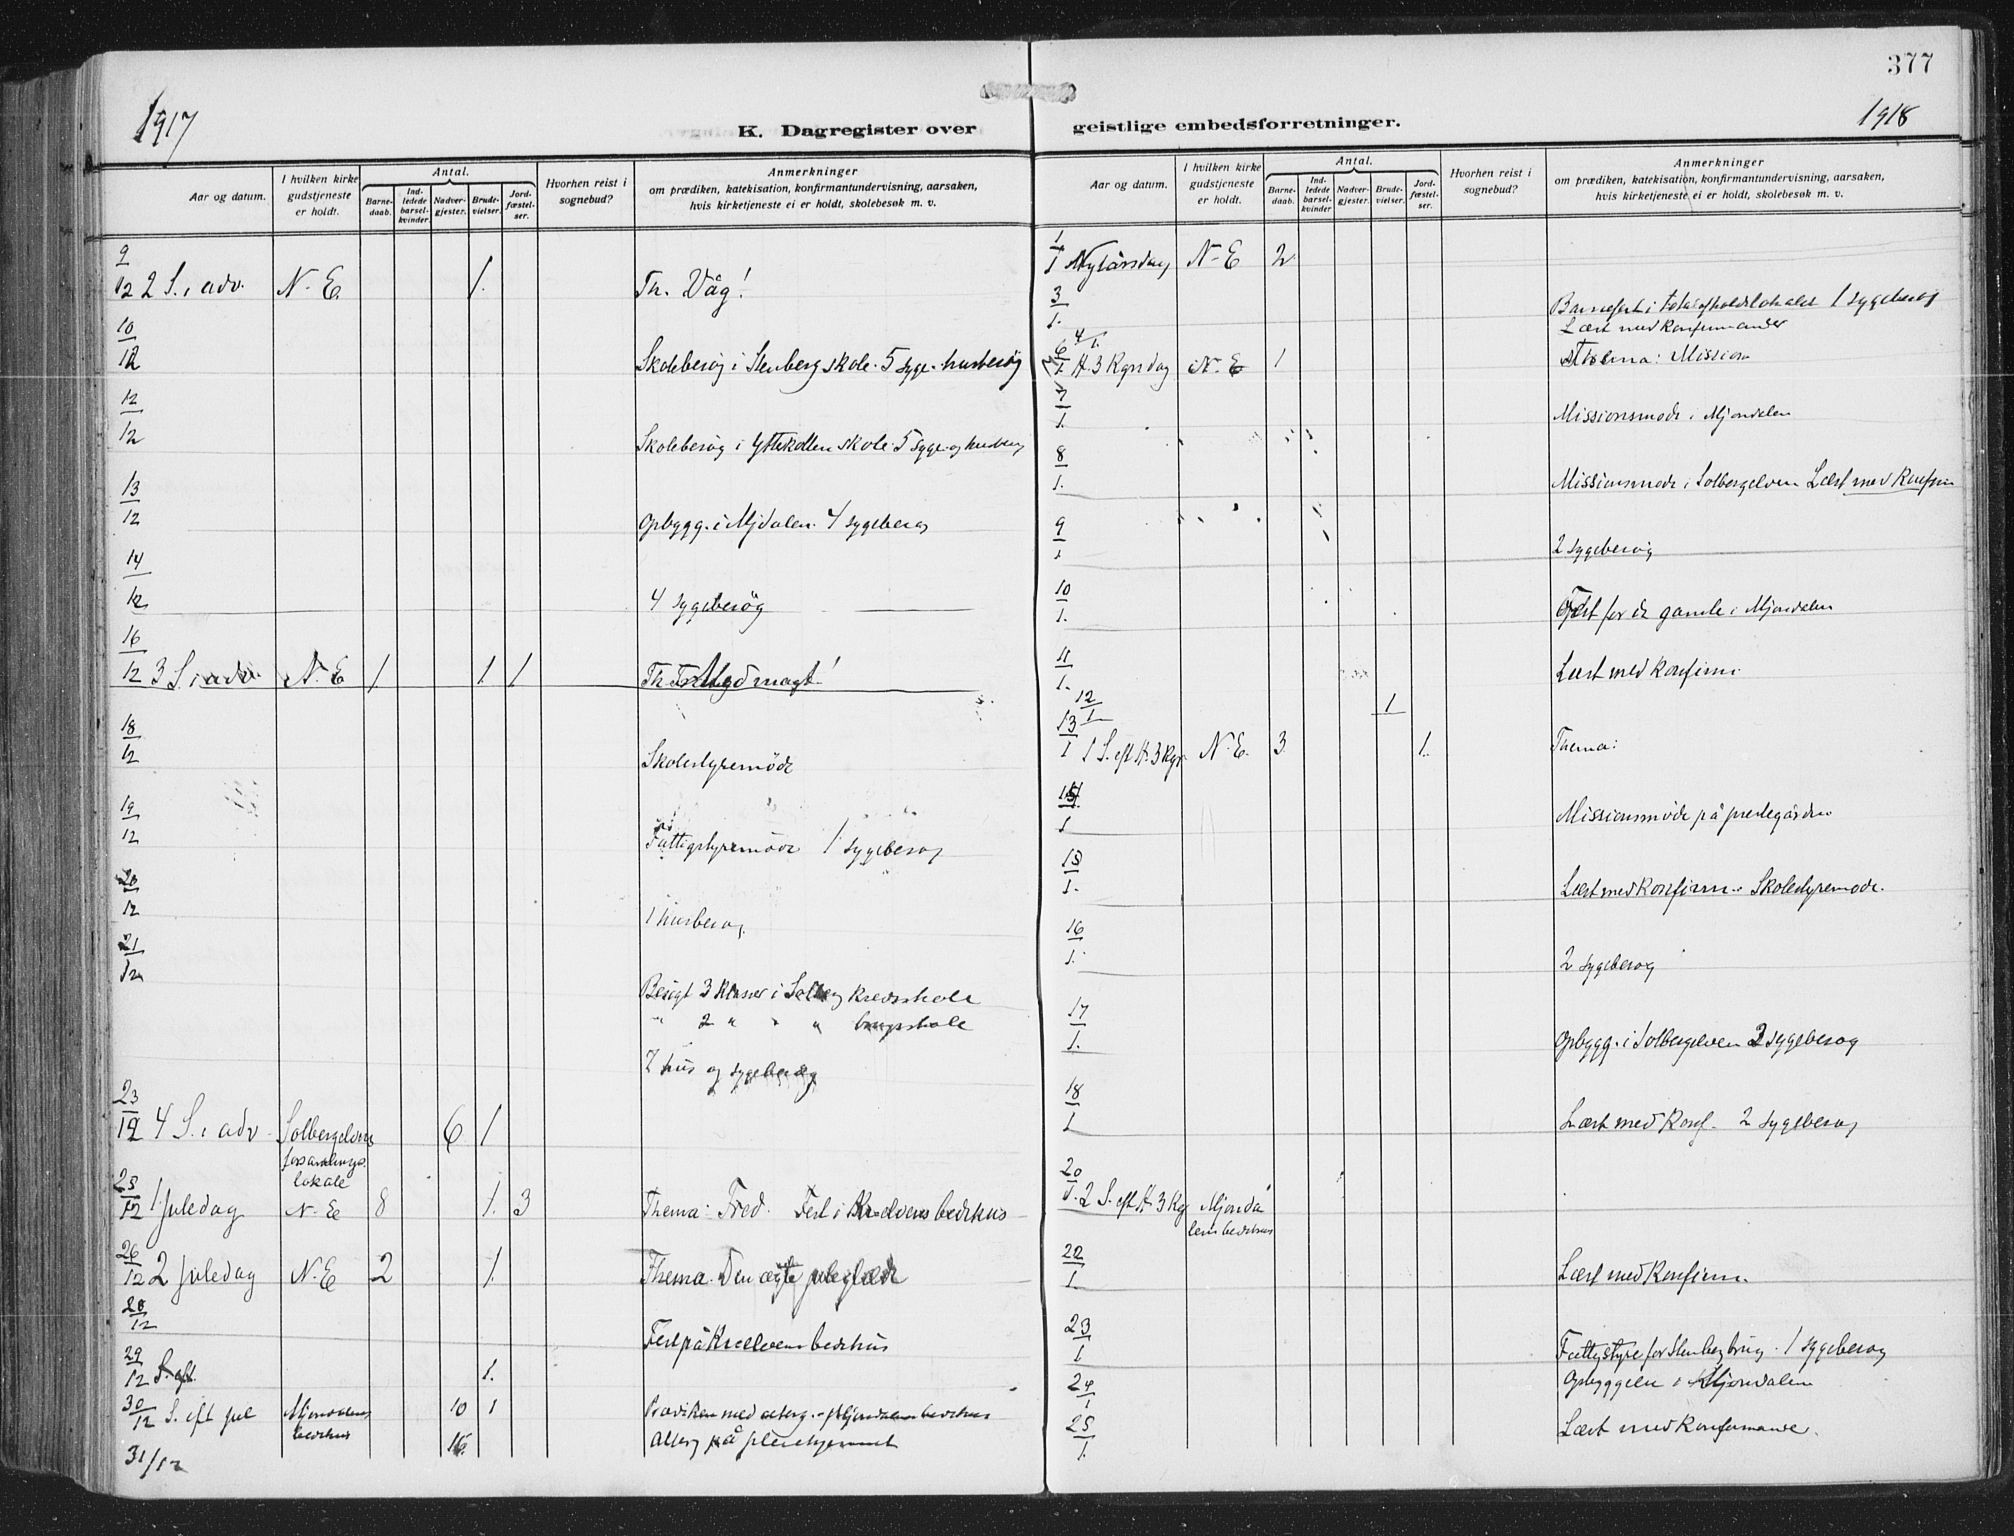 377
1917
1918
K. Dagregister over geistlige embedsforretninger.
Aar og datum.
I hvilken kirke gudstjeneste er holdt.
Antal.
Barne-daab.
Ind-ledede barsel-kvinder
Nadver-gjester.
Brude-vielser.
Jord-fæstel-ser.
Hvorhen reist i sognebud?
Anmerkninger
om prædiken, katekisation, konfirmantundervisning, aarsaken,
hvis kirketjeneste ei er holdt, skolebesøk m. v.
9/12 2 S. i adv. N. E. 1. Th. Våg!
10/12 Skolebesøg i Stenberg skole. 5 syge- husbesøg
12/12 Skolebesøg i skole. 5 syge- og husbesøg
13/12 Opbygg. i Mjdalen. 4 sygebesøg
14/12 4 sygebesøg
16/12 3 S. i adv. N. E 1 1 1 Th.
18/12 Skolestyremöde
19/12 Fattigstyremöde 1 sygebesøg
20/12 1 husbesøg.
21/12 Besøgt 3 klasser i Solberg Kredsskole
" 2 " " " brugsskole
7 hus og sygebesøg
23/12 4 S. i adv. Solbergelven 6 1
forsamlings
lokale
25/12 1 juledag N. E 8 1. 3 Thema: Fred. Fest i Krokelvens bedehus
26/12 2 juledag N. E 2 1. Thema. Den ægte juleglæde
28/12 Fest på bedehus
29/12 1.
30/12 S. eft jul Mjøndalens 10 1 Prædiken med alterg. i Mjøndalen bedehus
bedehus 16 Alterg på pleiehjemmet
31/12
Aar og datum.
I hvilken kirke gudstjeneste er holdt.
Antal.
Barne-daab.
Ind-ledede barsel-kvinder
Nadver-gjester.
Brude-vielser.
Jord-fæstel-ser.
Hvorhen reist i sognebud?
Anmerkninger
om prædiken, katekisation, konfirmantundervisning, aarsaken,
hvis kirketjeneste ei er holdt, skolebesøk m. v.
1/1 Nytårsdag N-E 2
3/1. Barnefest i totalafholdslokalet 1 sygebesøg
4/1. Læst med konfirmander
6/1 H. 3 Kgrs dag N. E 1 Thema: Mission
7/1. Missionsmöde i Mjøndalen
8/1. Missionsmöde i Solbergelven Læst med konfirm
9/1 2 sygebesøg
10/1. Fest for de gamle i Mjøndalen
11/1. Læst med konfirm.
12/1 1
13/1 1 S. eft H. 3 Kgr. N. E. 3 1. Thema:
14/1 Missionsmöde på prestegården
15/1. Læst med konfirm. Skolestyremøde.
16/1. 2 sygebesøg
17/1. Opbygg. i Solbergelven 3 sygebesøg
18/1 Læst med konf. 2 sygebesøg
20/1. 2 S. eft H. 3 Kg Mjønda
lens bedehus
22/1. Læst med konfirm.
23/1 Fattigstyre for Stenberg brug. 1 sygebesøg
24/1 Opbyggelse i Mjøndalen
25/1. Læst med konfirmande.